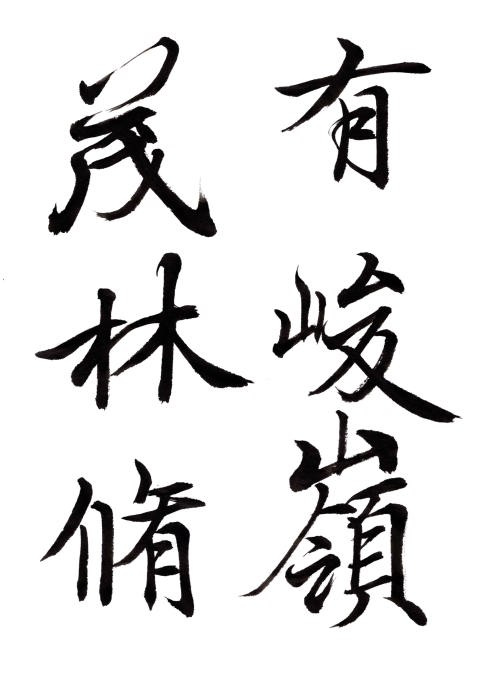 有峻嶺
茂林脩